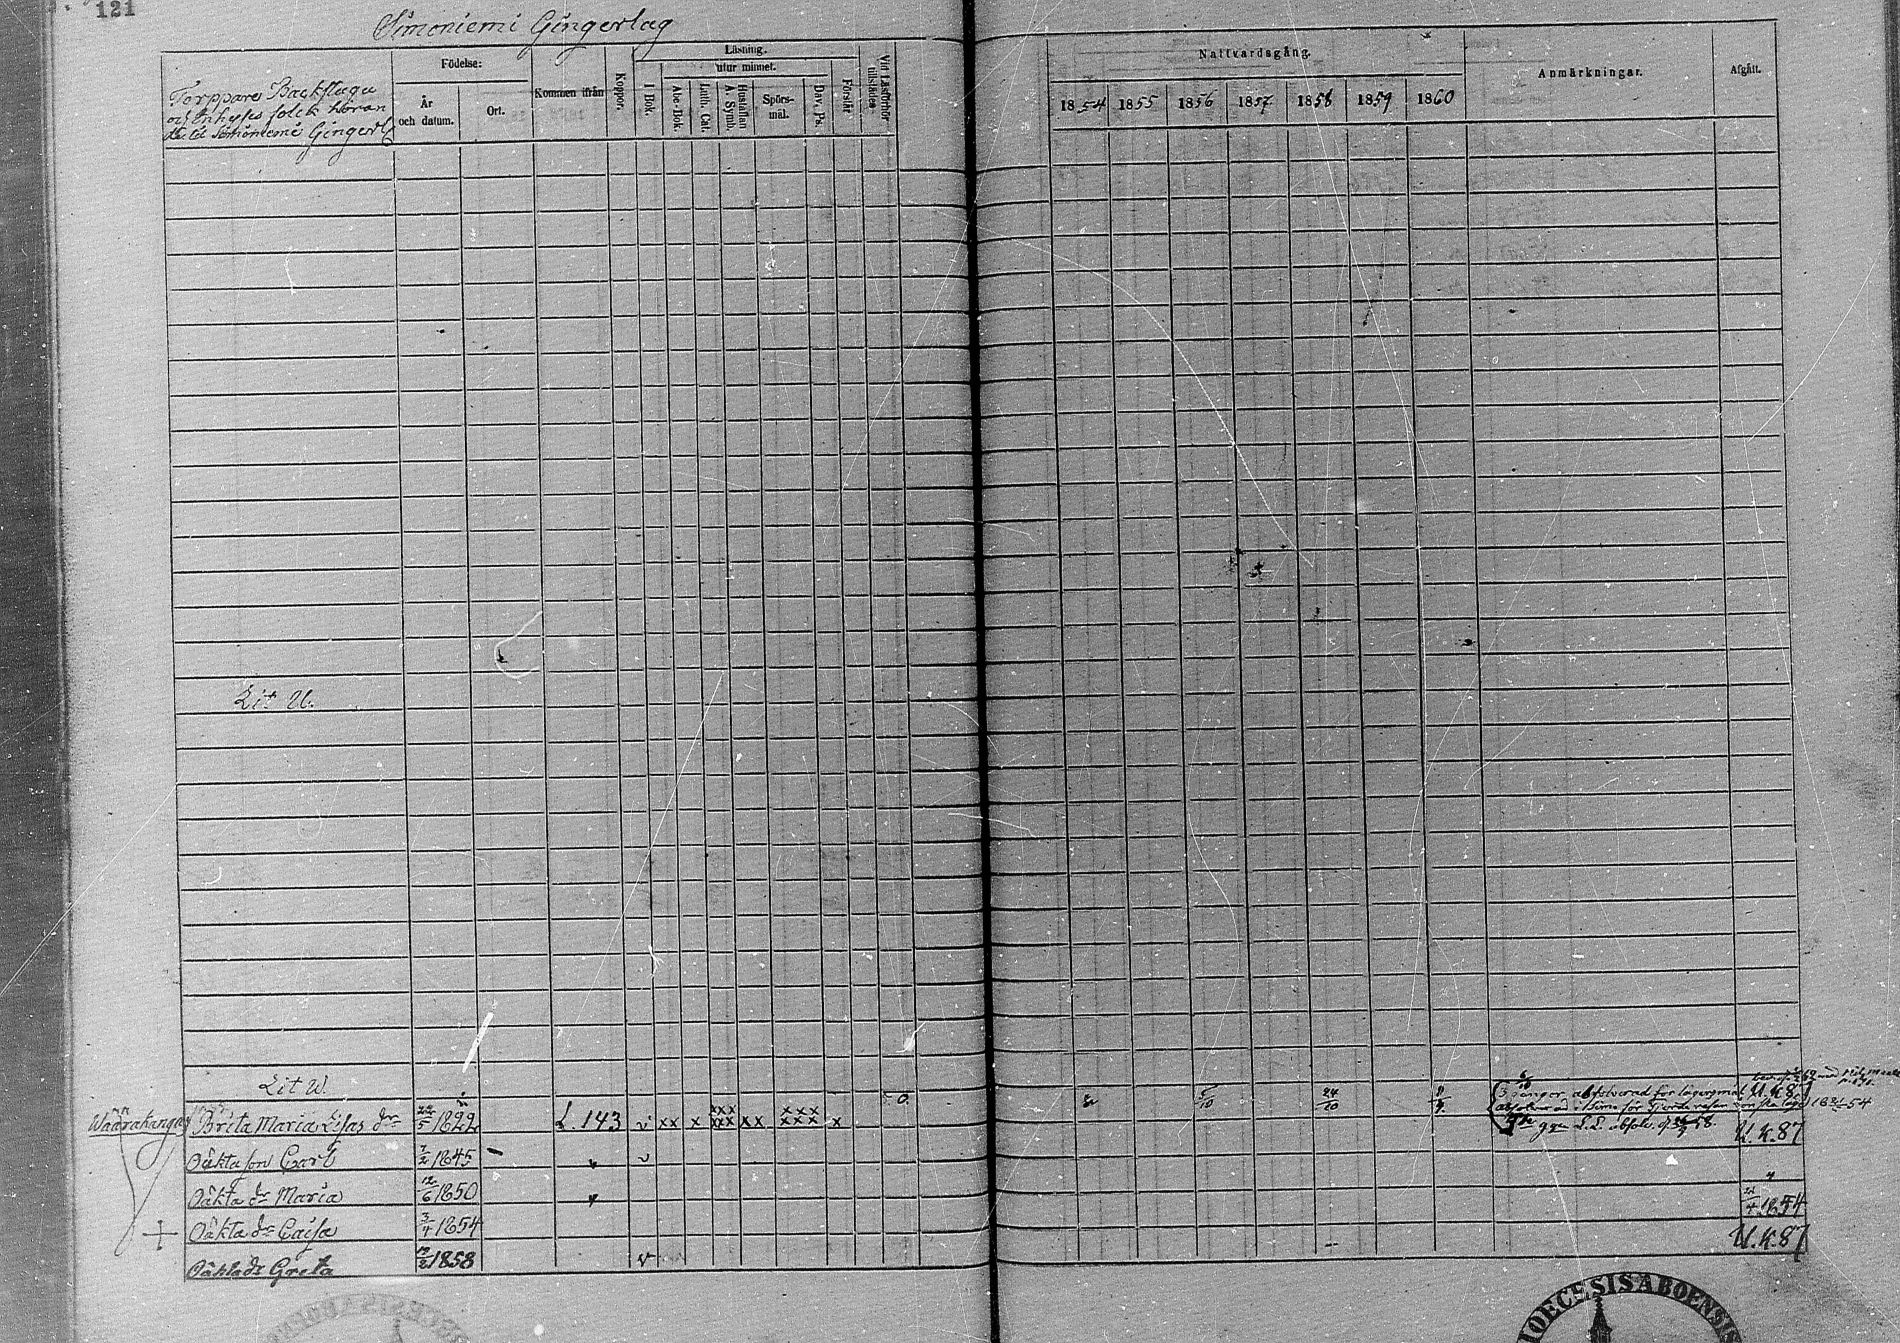 121
Simoniemi Gingerlag
Torppare Backstugu
och Inhyses folck höran
de til Simoniemi Gingerl
Födelse:
År
och datum.
Ort.
Kommen ifrån
Koppor.
Läsning.
I Bok.
utur minnet.
Abc-Bok.
Luth. Cat.
Hustaflan
A. Symb.
Spörs-
mål.
Dav. Ps.
Förstår
Vid Läsförhör
tillstädes
Nattvardsgång.
1854 1855 1856 1857 1858 1859 1860
Anmärkningar.
Afgått.
Lit U.
Lit W.
Waarakangas Brita Maria Lisas dr 22/5 1822 L. 143 v xx x xxx xxx xx xxx xxx x 0. 5/10 24/10
3 gånger absolverad för lägersmål U.K.87
1854
U.K.87
Oäkta son Carl 7/2 1845 v
Oäkta dr Maria 12/6 1850
+ Oäkta dr Caisa 3/4 1854 1854
Oäkta dr Greta 1858 v U.K.87
DIOECESIS ABOENSIS